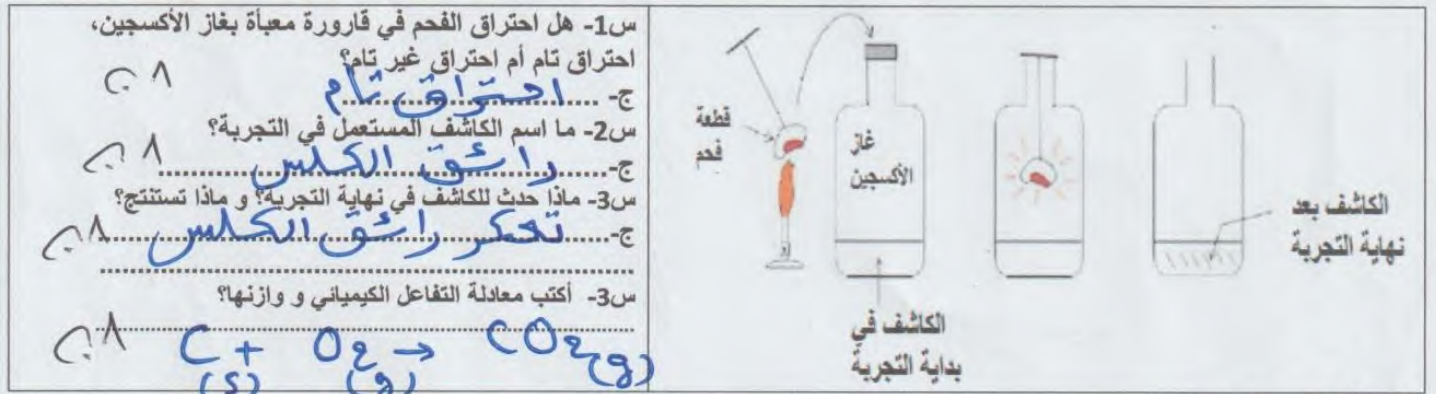 س1- هل احتراق الفحم في قارورة معبأة بغاز الأكسجين،
احتراق تام أم احتراق غير تام؟
ج- احتراق تام
س2- ما اسم الكاشف المستعمل في التجربة؟
ج- رائق الكلس
س3- ماذا حدث للكاشف في نهاية التجربة؟ و ماذا تستنتج؟
ج- تعكر رائق الكلس
س3- أكتب معادلة التفاعل الكيميائي و وازنها؟
C(s) + O2(g) → CO2(g)
قطعة
فحم
غاز
الأكسجين
الكاشف في
بداية التجربة
الكاشف بعد
نهاية التجربة